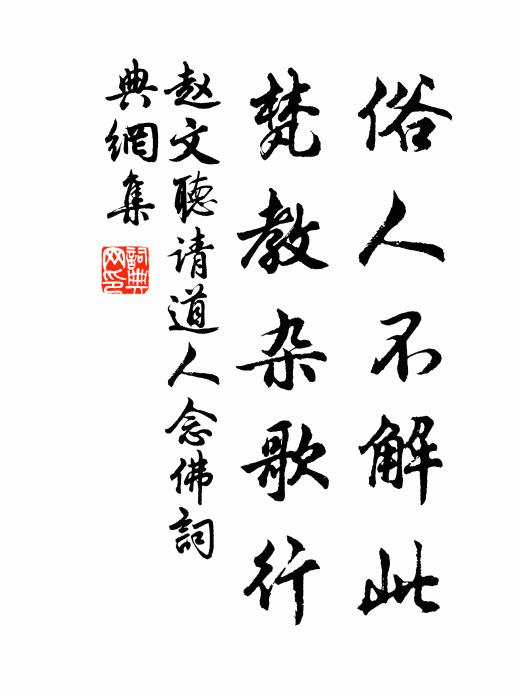 俗人不解此
梵教杂歌行
赵文聽请道人念佛詞
典網集
詞典網印